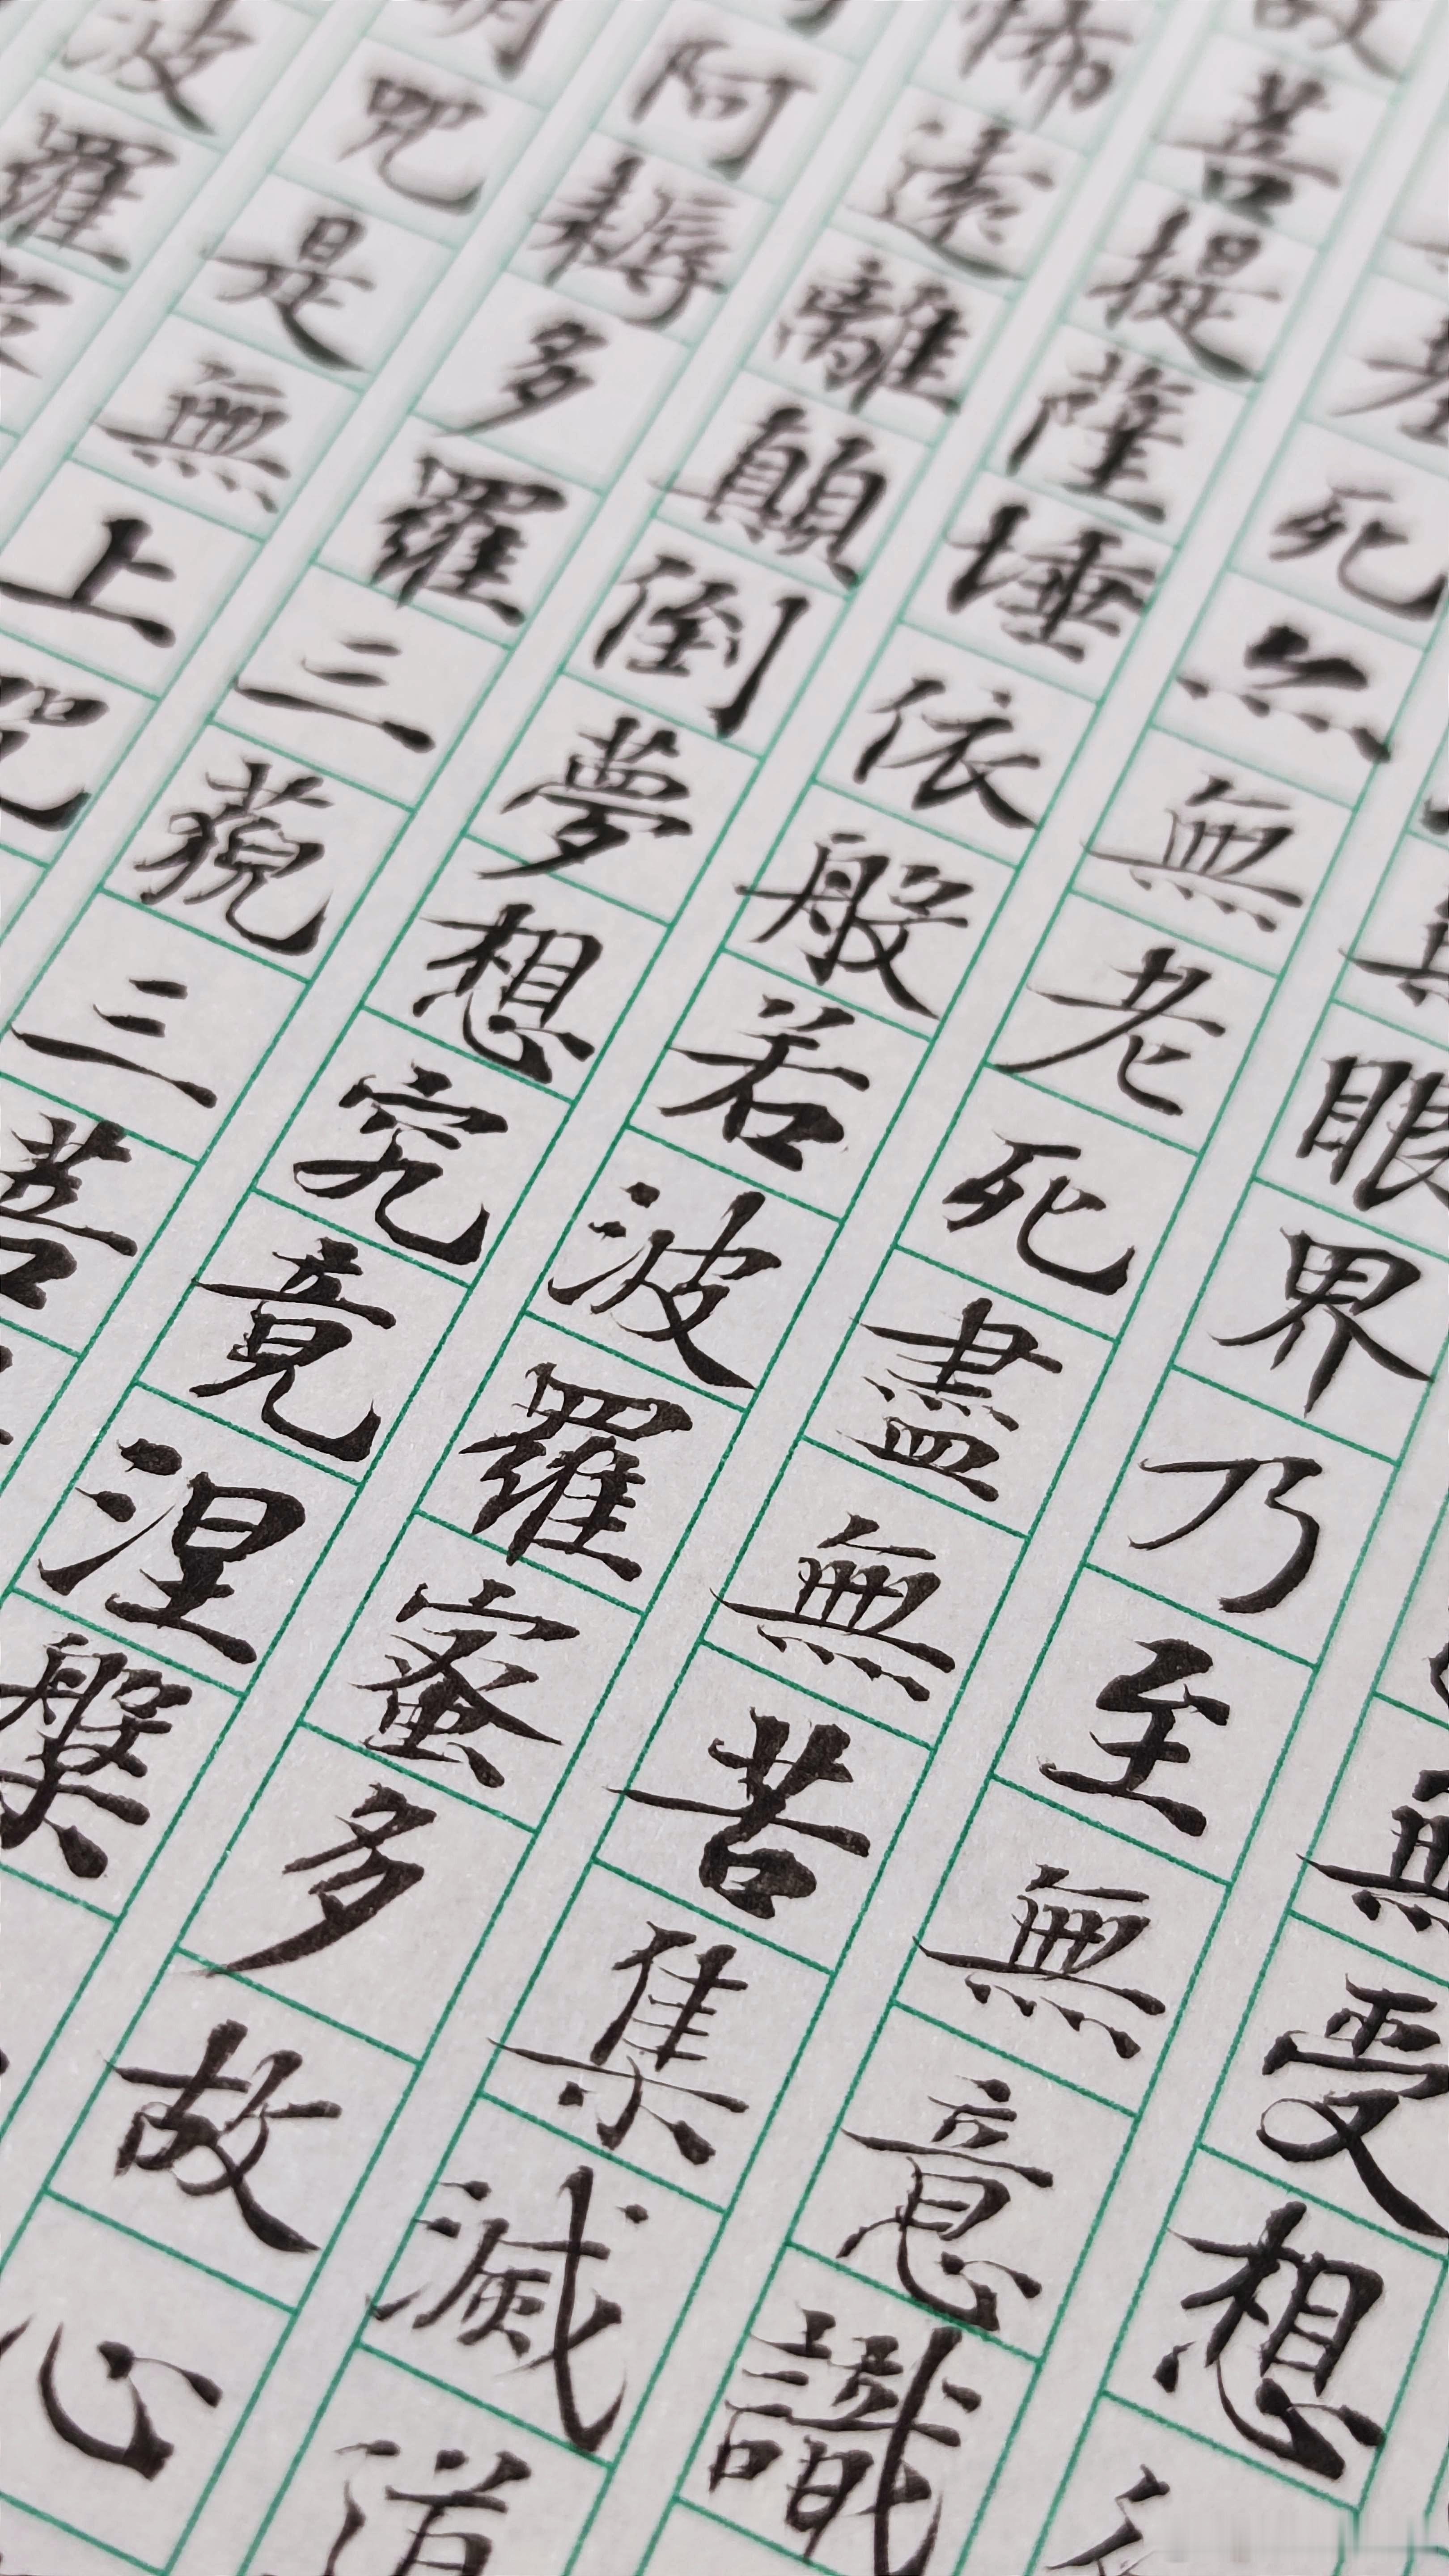 無受想
眼界乃至無意識
死亦無老死盡無苦集滅道
故菩提薩埵依般若波羅蜜多故心
怖遠離顛倒夢想究竟涅槃
阿耨多羅三藐三菩
明咒是無上咒
波羅